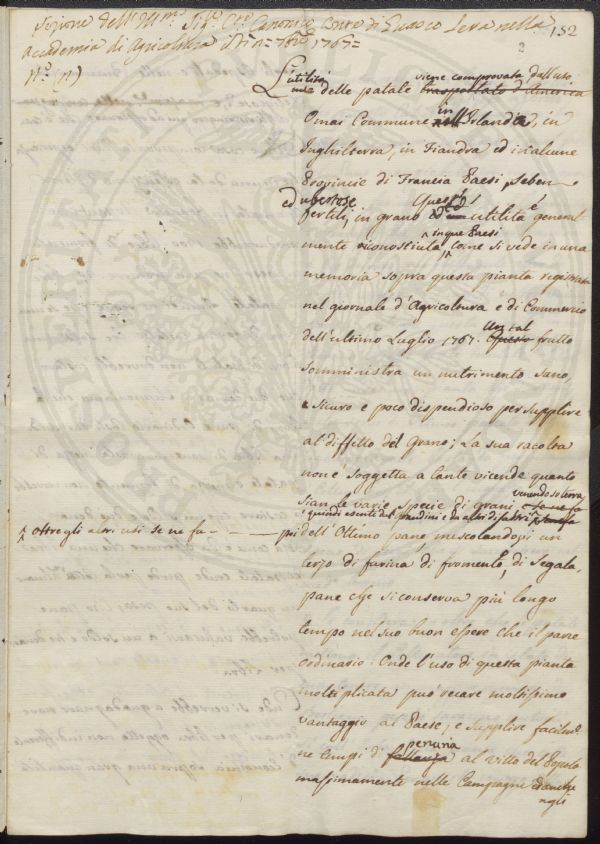 Sezione dell' Ill.mo Sig.r Canonico Conte di Letta nella
Accademia di Agricoltura 1767
N.o (11)
2
152
L'utilità delle patate viene comprovata dall'uso
trasportato d'America
Omai Commune in Irlanda, in
Inghilterra, in Fiandra ed in alcune
Provincie di Francia Paesi sebene
fertili, ed ubertose in grano. Quest' utilità è general
mente riconosciuta in que Paesi, come si vede in una
memoria sopra questa pianta registrata
nel giornale d'Agricoltura e di Commercio
dell'ultimo Luglio 1767. Un tal Questo frutto
somministra un nutrimento sano,
sicuro e poco dispendioso per supplire
al diffetto del grano; La sua racolta
non è soggetta a tante vicende quanto
sian le varie specie di grani venendo sotterra,
e quindi esenti dal grandini e da altri
oltre gli altri usi se ne fa
dell'Ottimo pane, mescolandovi un
terzo di farina di fromento, di Segala,
pane che si conserva più longo
tempo nel suo buon essere che il pane
ordinario. Onde l'uso di questa pianta
moltiplicata può recare moltissimo
vantaggio al Paese, e supplire facilm.e
ne tempi di penuria al vitto del Popolo
massimamente nelle Campagne